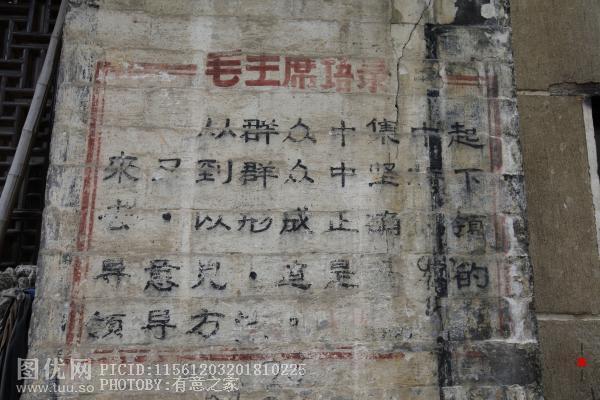 毛主席语录
从群众中集中起
來又到群众中坚下
去，以形成正确领
导意见，这是的
领导方法。
图优网
www.tuu.so
PICID:11561203201810225
PHOTOBY:有意之家